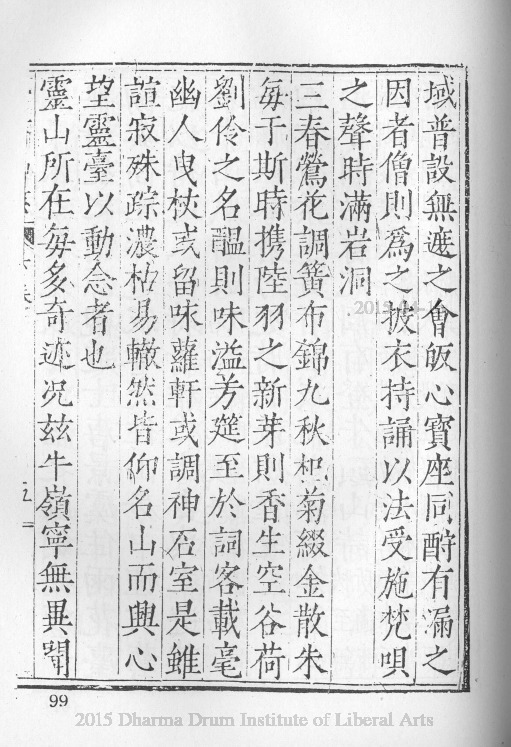 域普設無遮之會皈心寶座同酧有漏之
因者僧則爲之披衣持誦以法受施梵唄
之聲時滿岩洞
三春鶯花調簧布錦九秋杞菊綴金散朱
每于斯時携陸羽之新芽則香生空谷荷
劉伶之名醖則味溢芳筵至於詞客載毫
幽人曳杖或留咏蘿軒或調神石室是雖
諠寂殊踪濃枯易轍然皆仰名山而興心
望靈臺以動念者也
靈山所在每多奇迹况兹牛嶺寧無異聞
99
2015 Dharma Drum Institute of Liberal Arts